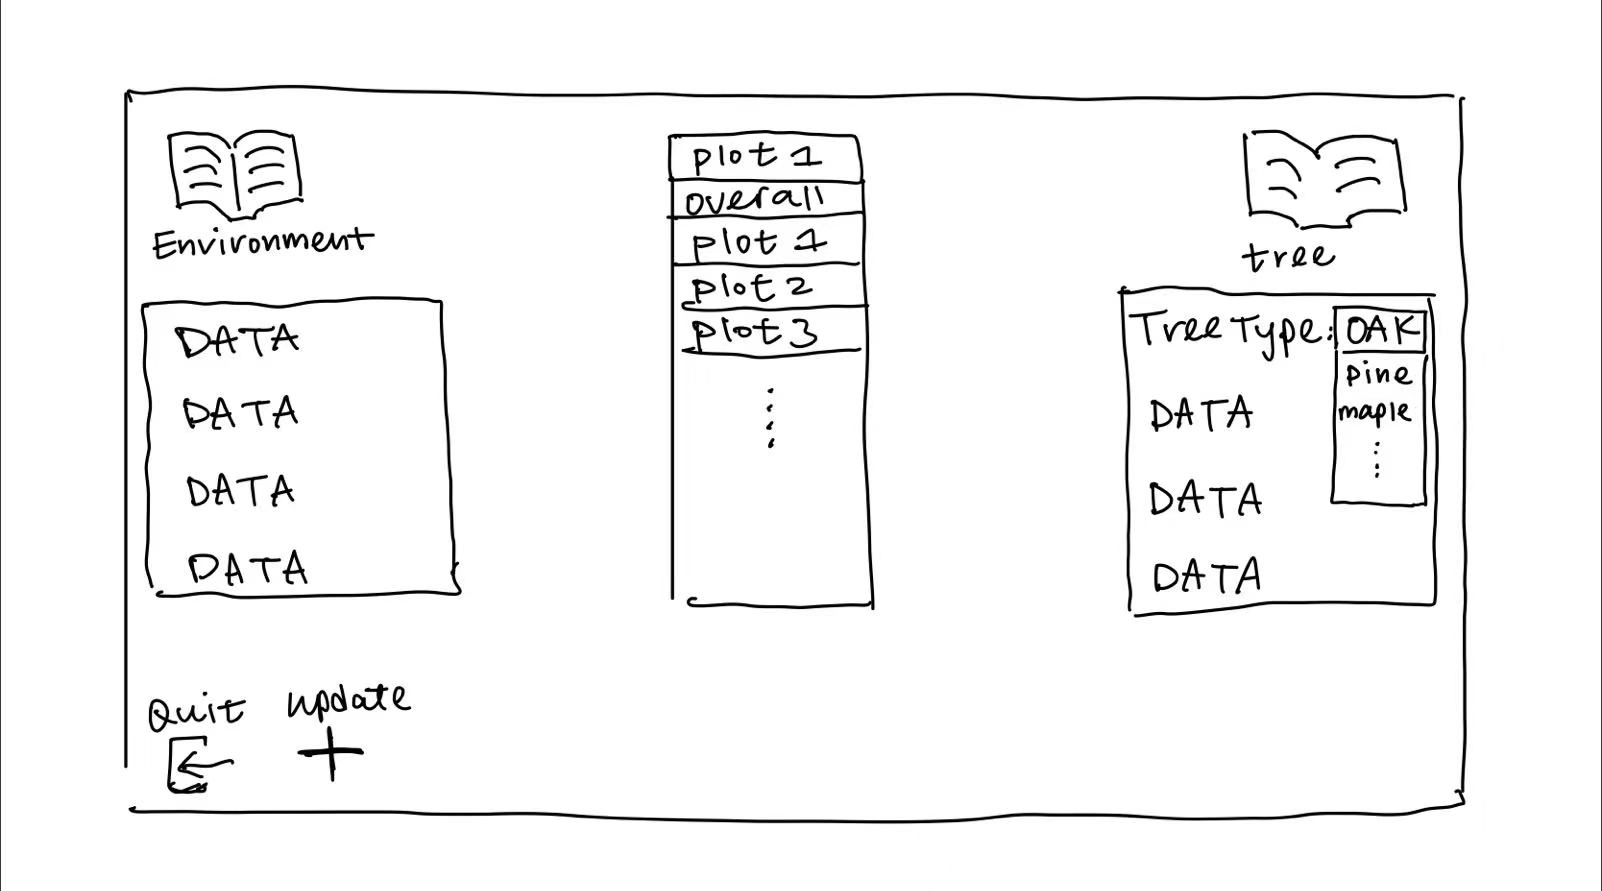 Environment
DATA
DATA
DATA
DATA
Quit
update
plot 1
overall
plot 1
plot 2
plot 3
tree
Tree Type: OAK
pine
maple
DATA
DATA
DATA